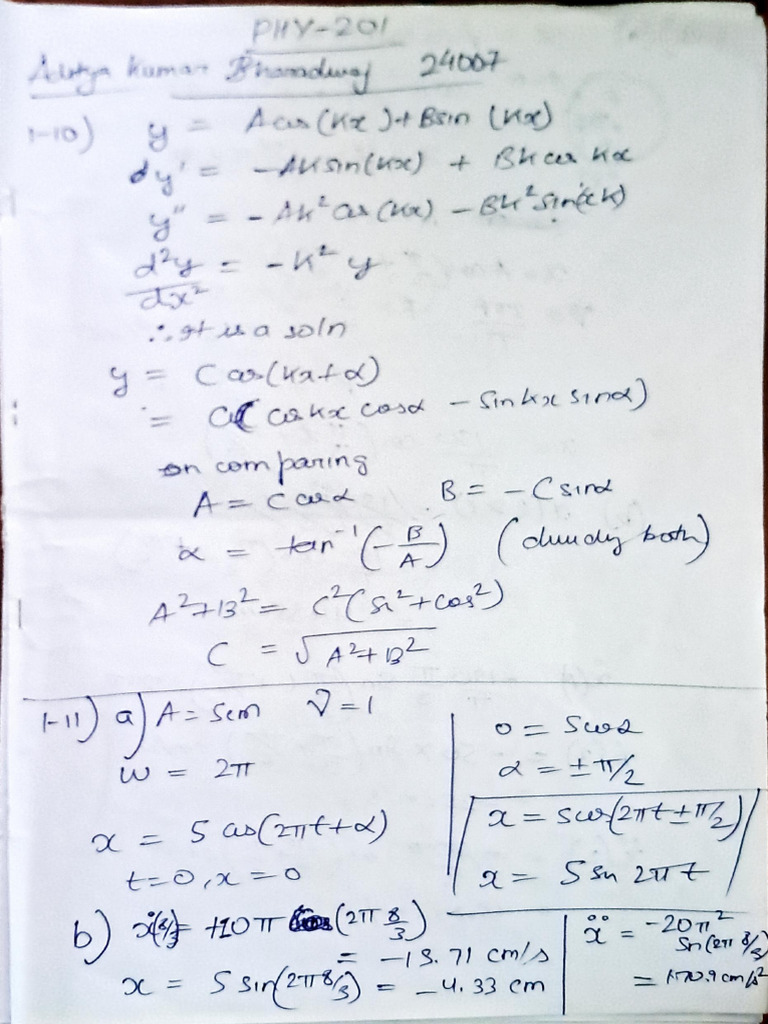 PHY-201
Aditya Kumar Bharadwaj 24007
1-10) y = A cos(kx) + B sin (kx)
dy' = -Ak sin(kx) + Bk cos kx
y'' = -Ak² cos (kx) - Bk² sin(xk)
d²y/dx² = -k² y
∴ It is a soln
y = C cos(kx+α)
= C( coskx cosα - sinkx sinα)
on comparing
A = C cosα B = -C sinα
α = tan⁻¹(-B/A) (dividing both)
A²+B² = C²(Si²+cos²)
C = √A²+B²
1-11) a) A = 5cm ν = 1
ω = 2π
x = 5 cos(2πt+α)
t=0, x=0
0 = 5cosα
α = ±π/2
x = 5cos(2πt±π/2)
x = 5 sin 2πt
b) ẋ(8/3) = +10π cos(2π 8/3)
= -15.71 cm/s
x = 5 sin(2π8/3) = -4.33 cm
ẍ = -20π²
Sin(2π 8/3)
= 170.9 cm/s²